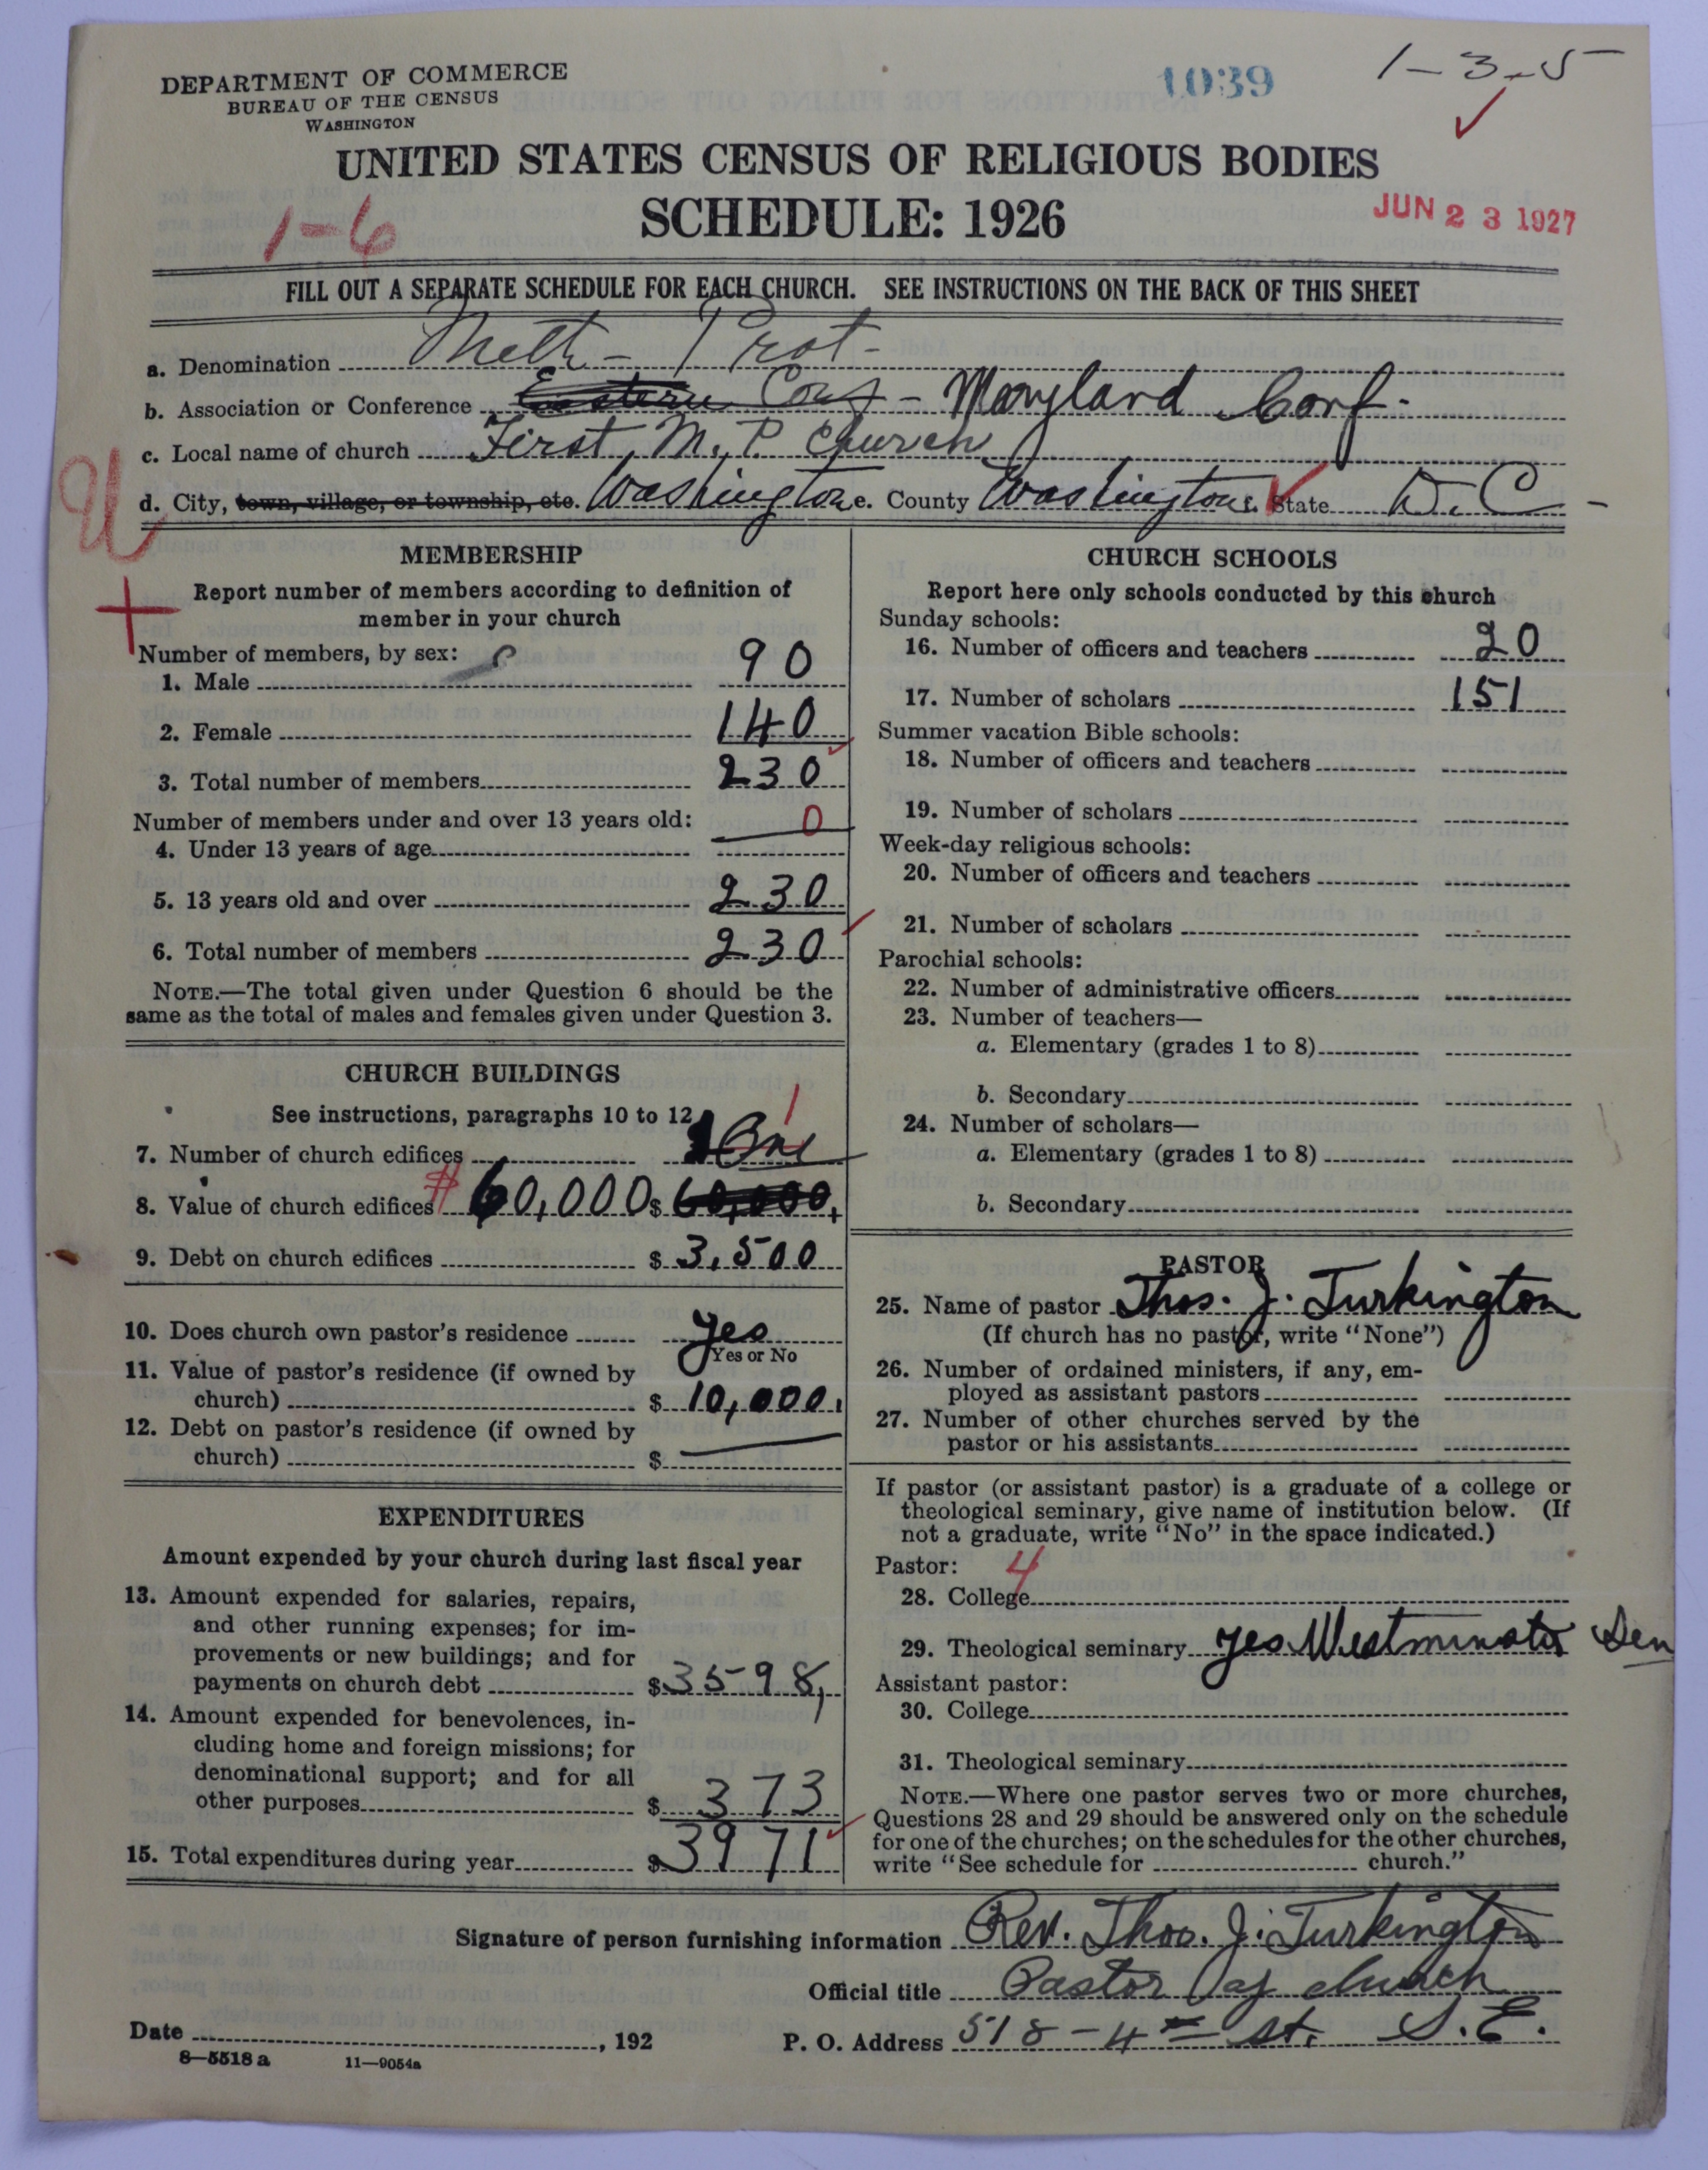 DEPARTMENT OF COMMERCE
BUREAU OF THE CENSUS
WASHINGTON
1039
1-3-5
UNITED STATES CENSUS OF RELIGIOUS BODIES
SCHEDULE: 1926
1-6
JUN 23 1927
FILL OUT A SEPARATE SCHEDULE FOR EACH CHURCH. SEE INSTRUCTIONS ON THE BACK OF THIS SHEET
a. Denomination Meth - Prot -
b. Association or Conference Eastern Conf - Maryland Conf.
c. Local name of church First M. P. Church
d. City, town, village, or township, etc. Washington e. County Washington f. State D. C -
U
MEMBERSHIP
Report number of members according to definition of
member in your church
Number of members, by sex:
1. Male 90
2. Female 140
3. Total number of members 230
Number of members under and over 13 years old:
4. Under 13 years of age 0
5. 13 years old and over 230
6. Total number of members 230
NOTE.—The total given under Question 6 should be the
same as the total of males and females given under Question 3.
CHURCH BUILDINGS
See instructions, paragraphs 10 to 12
7. Number of church edifices One 1
8. Value of church edifices # 60,000 $ 60,000
9. Debt on church edifices $ 3,500
10. Does church own pastor's residence yes
Yes or No
11. Value of pastor's residence (if owned by
church) $ 10,000.
12. Debt on pastor's residence (if owned by
church) $ —
EXPENDITURES
Amount expended by your church during last fiscal year
13. Amount expended for salaries, repairs,
and other running expenses; for im-
provements or new buildings; and for
payments on church debt $ 3598,
14. Amount expended for benevolences, in-
cluding home and foreign missions; for
denominational support; and for all
other purposes $ 373
15. Total expenditures during year $ 3971
CHURCH SCHOOLS
Report here only schools conducted by this church
Sunday schools:
16. Number of officers and teachers 20
17. Number of scholars 151
Summer vacation Bible schools:
18. Number of officers and teachers
19. Number of scholars
Week-day religious schools:
20. Number of officers and teachers
21. Number of scholars
Parochial schools:
22. Number of administrative officers
23. Number of teachers—
a. Elementary (grades 1 to 8)
b. Secondary
24. Number of scholars—
a. Elementary (grades 1 to 8)
b. Secondary
PASTOR
25. Name of pastor Thos. J. Turkington
(If church has no pastor, write "None")
26. Number of ordained ministers, if any, em-
ployed as assistant pastors
27. Number of other churches served by the
pastor or his assistants
If pastor (or assistant pastor) is a graduate of a college or
theological seminary, give name of institution below. (If
not a graduate, write "No" in the space indicated.)
Pastor: 4
28. College
29. Theological seminary yes Westminster Sem
Assistant pastor:
30. College
31. Theological seminary
NOTE.—Where one pastor serves two or more churches,
Questions 28 and 29 should be answered only on the schedule
for one of the churches; on the schedules for the other churches,
write "See schedule for church."
Signature of person furnishing information Rev. Thos. J. Turkington
Official title Pastor of church
Date , 192
P. O. Address 518 - 4th St. S. E.
8—5518 a 11—9054a